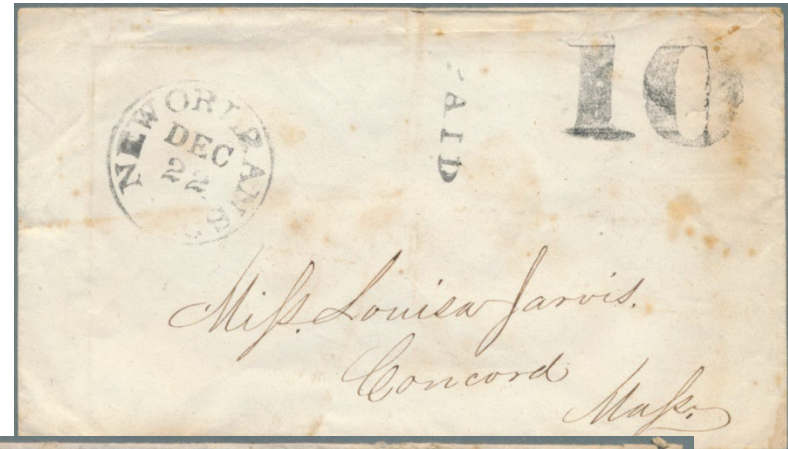 NEW ORLEANS
DEC
22
PAID
10
Miſs. Louisa Jarvis.
Concord
Maſs.